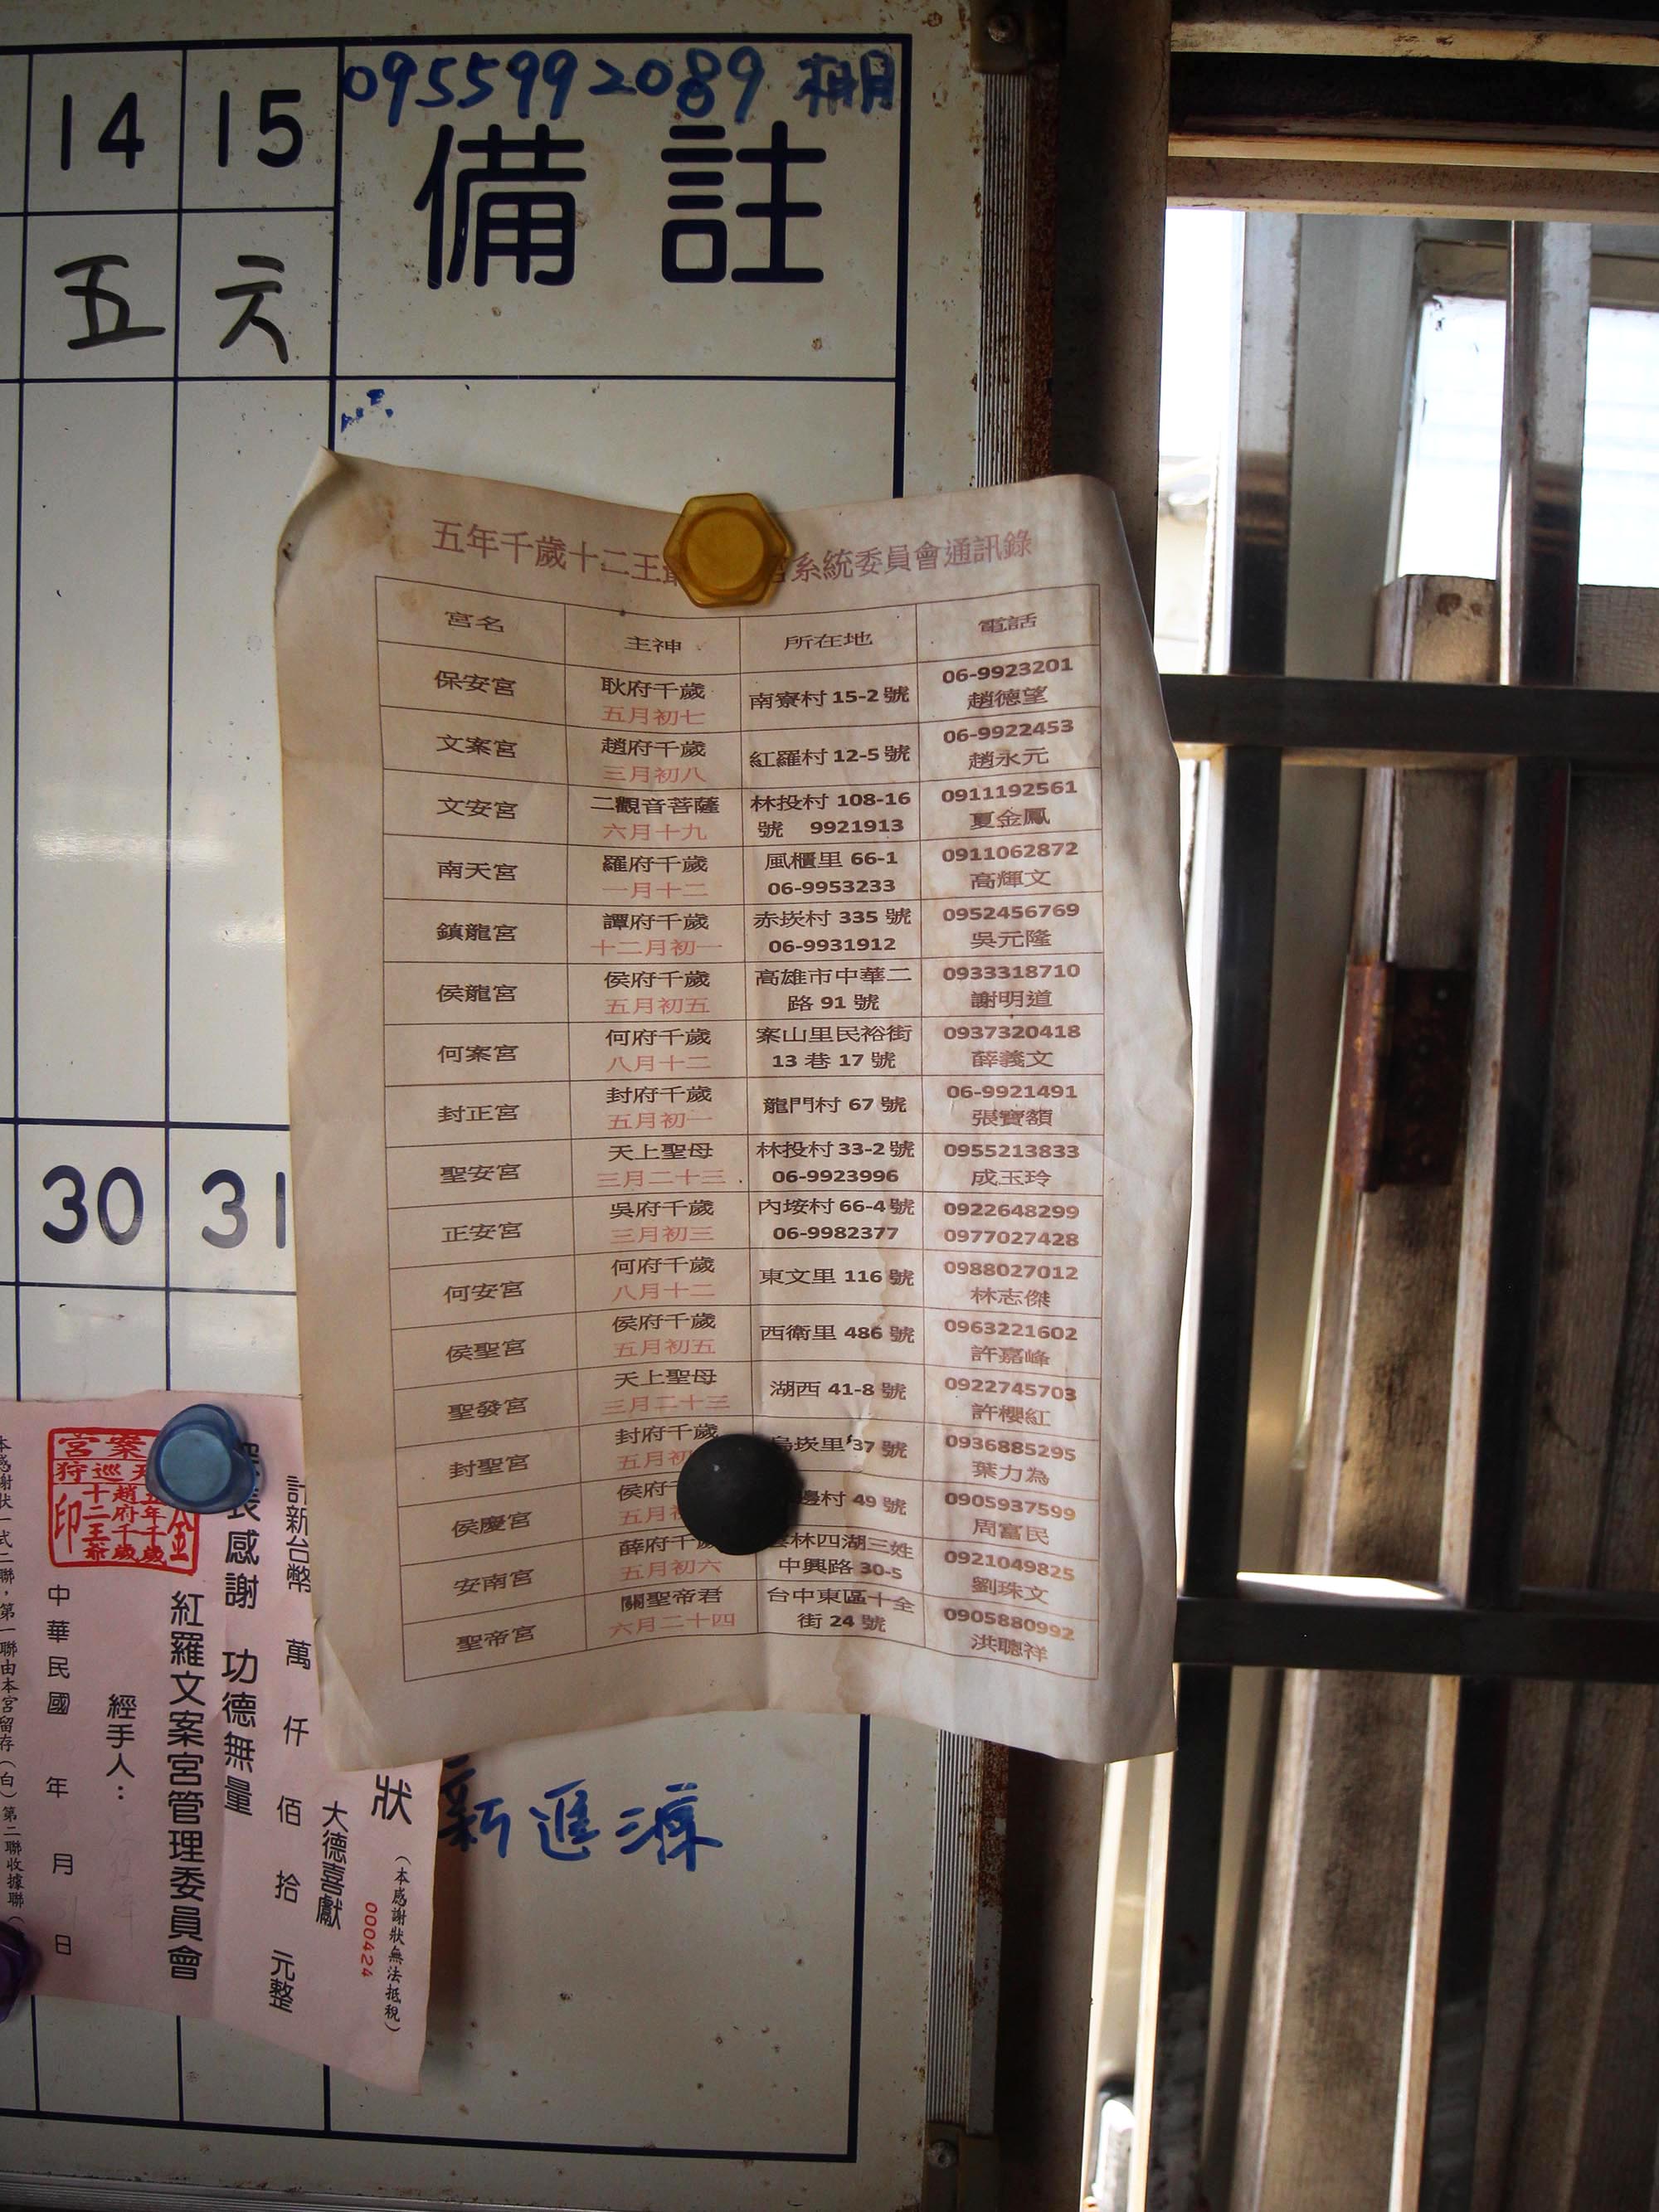 0955992089 棚
14 15 備註
五 六
五年千歲十二王 系統委員會通訊錄
宮名 主神 所在地 電話
保安宮 耿府千歲 五月初七 南寮村 15-2 號 06-9923201 趙德望
文案宮 趙府千歲 三月初八 紅羅村 12-5 號 06-9922453 趙永元
文安宮 二觀音菩薩 六月十九 林投村 108-16 號 9921913 0911192561 夏金鳳
南天宮 羅府千歲 一月十二 風櫃里 66-1 06-9953233 0911062872 高輝文
鎮龍宮 譚府千歲 十二月初一 赤崁村 335 號 06-9931912 0952456769 吳元隆
侯龍宮 侯府千歲 五月初五 高雄市中華二路 91 號 0933318710 謝明道
何案宮 何府千歲 八月十二 案山里民裕街 13 巷 17 號 0937320418 薛義文
封正宮 封府千歲 五月初一 龍門村 67 號 06-9921491 張寶額
聖安宮 天上聖母 三月二十三 林投村 33-2 號 06-9923996 0955213833 成玉玲
正安宮 吳府千歲 三月初三 內垵村 66-4 號 06-9982377 0922648299 0977027428
何安宮 何府千歲 八月十二 東文里 116 號 0988027012 林志傑
侯聖宮 侯府千歲 五月初五 西衛里 486 號 0963221602 許嘉峰
聖發宮 天上聖母 三月二十三 湖西 41-8 號 0922745703 許櫻紅
封聖宮 封府千歲 五月初 烏崁里 37 號 0936885295 葉力為
侯慶宮 侯府千 五月初 邊村 49 號 0905937599 周富民
安南宮 薛府千歲 五月初六 雲林四湖三姓中興路 30-5 0921049825 劉珠文
聖帝宮 關聖帝君 六月二十四 台中東區十全街 24 號 0905880992 洪聰祥
30 31
狀
（本感謝狀無法抵稅）
000424
大德喜獻
計新台幣 萬 仟 佰 拾 元整
感謝 功德無量
紅羅文案宮管理委員會
經手人：
中華民國 年 月 日
本感謝狀一式二聯，第一聯由本宮留存（白）第二聯收據聯